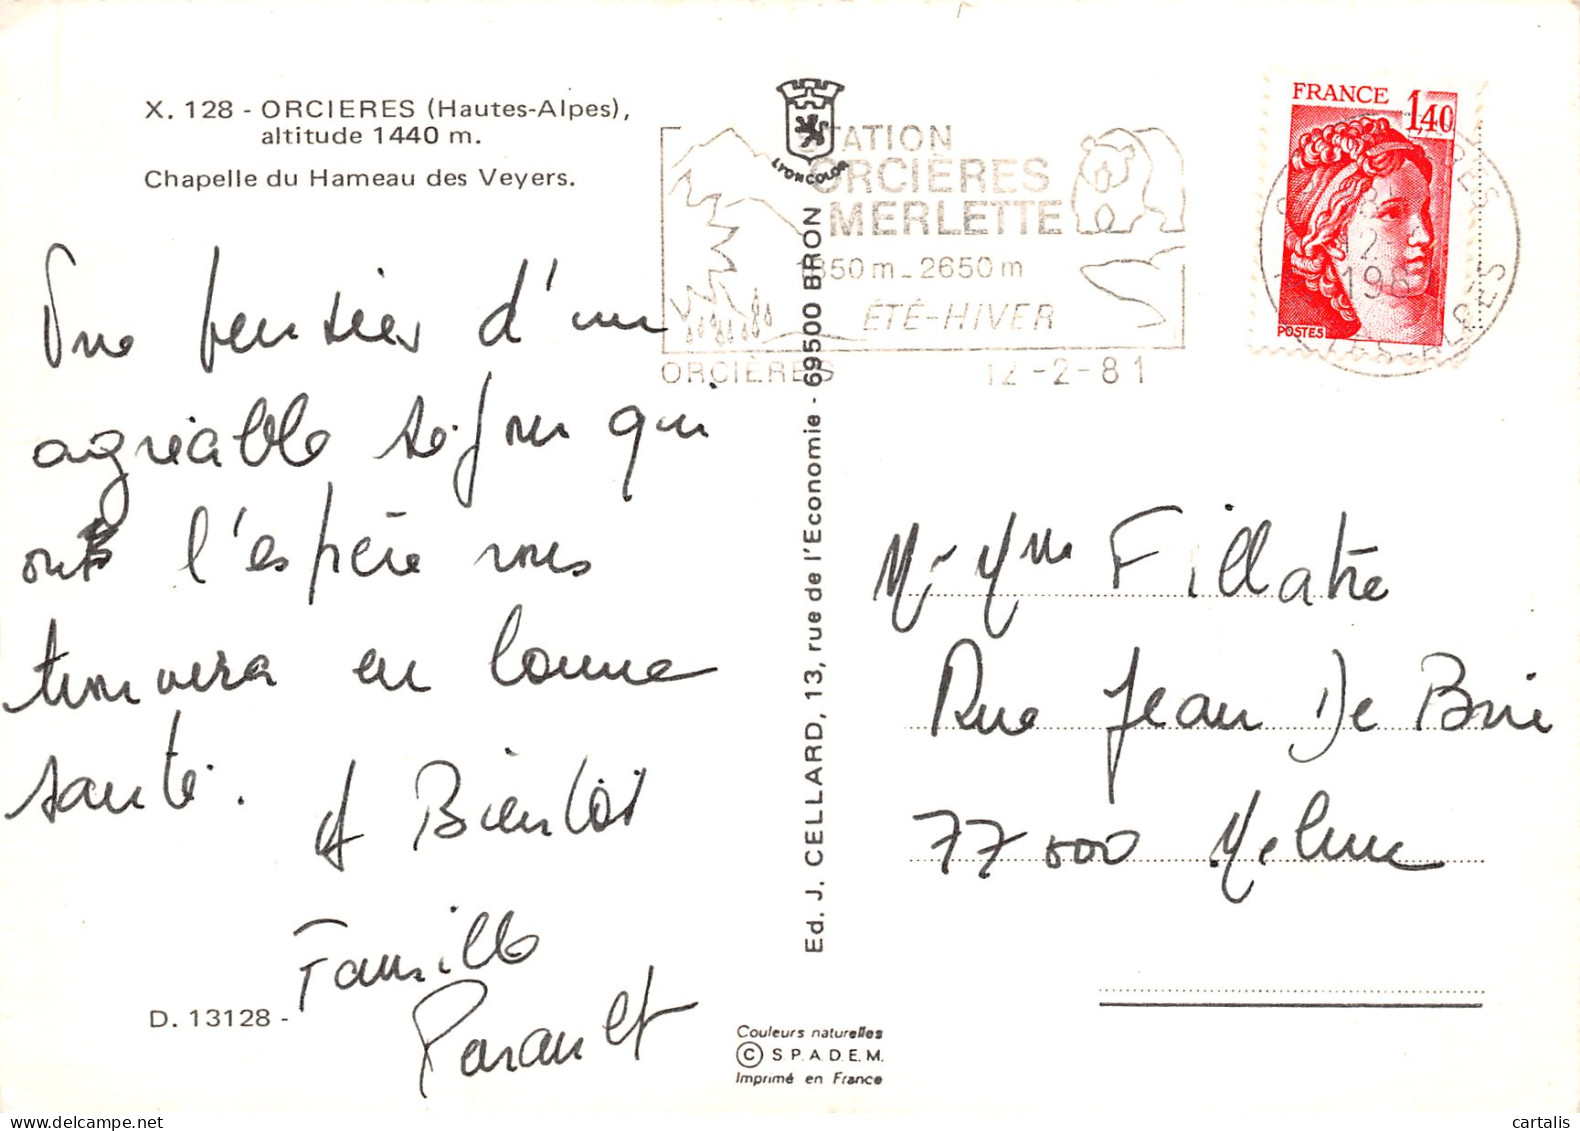 X. 128 - ORCIERES (Hautes-Alpes),
altitude 1440 m.
Chapelle du Hameau des Veyers.
Une pensier d'un
agréable séjour qui
ont l'espère vous
trouvera en bonne
santé.
A Bientôt
Famille
D. 13128 -
LYONCOLOR
STATION
ORCIÈRES
MERLETTE
1850 m - 2650 m
ÉTÉ-HIVER
ORCIÈRES 12-2-81
Ed. J. CELLARD, 13, rue de l'Economie - 69500 BRON
Couleurs naturelles
© S.P.A.D.E.M.
Imprimé en France
FRANCE 1,40
POSTES
12-2
Mr Mme Fillatre
Rue Jean De Brie
77000 Melun
cartalis